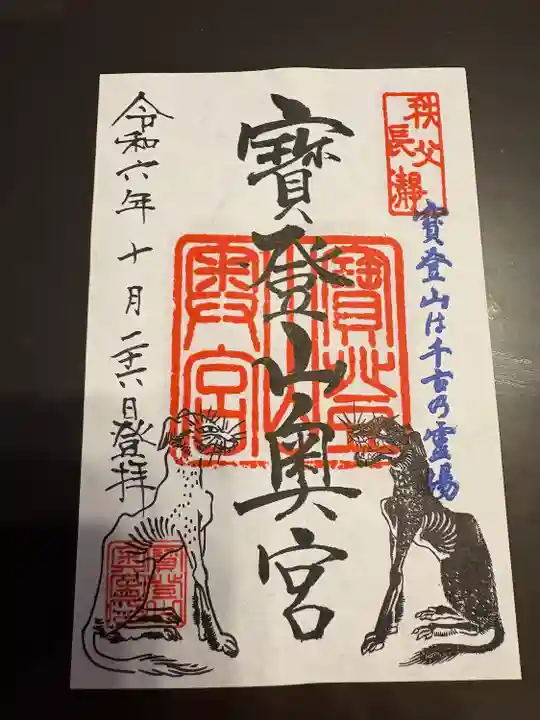 秩父
長瀞
寳登山は千古乃霊場
寳登山奥宮
令和六年十月二十六日登拝